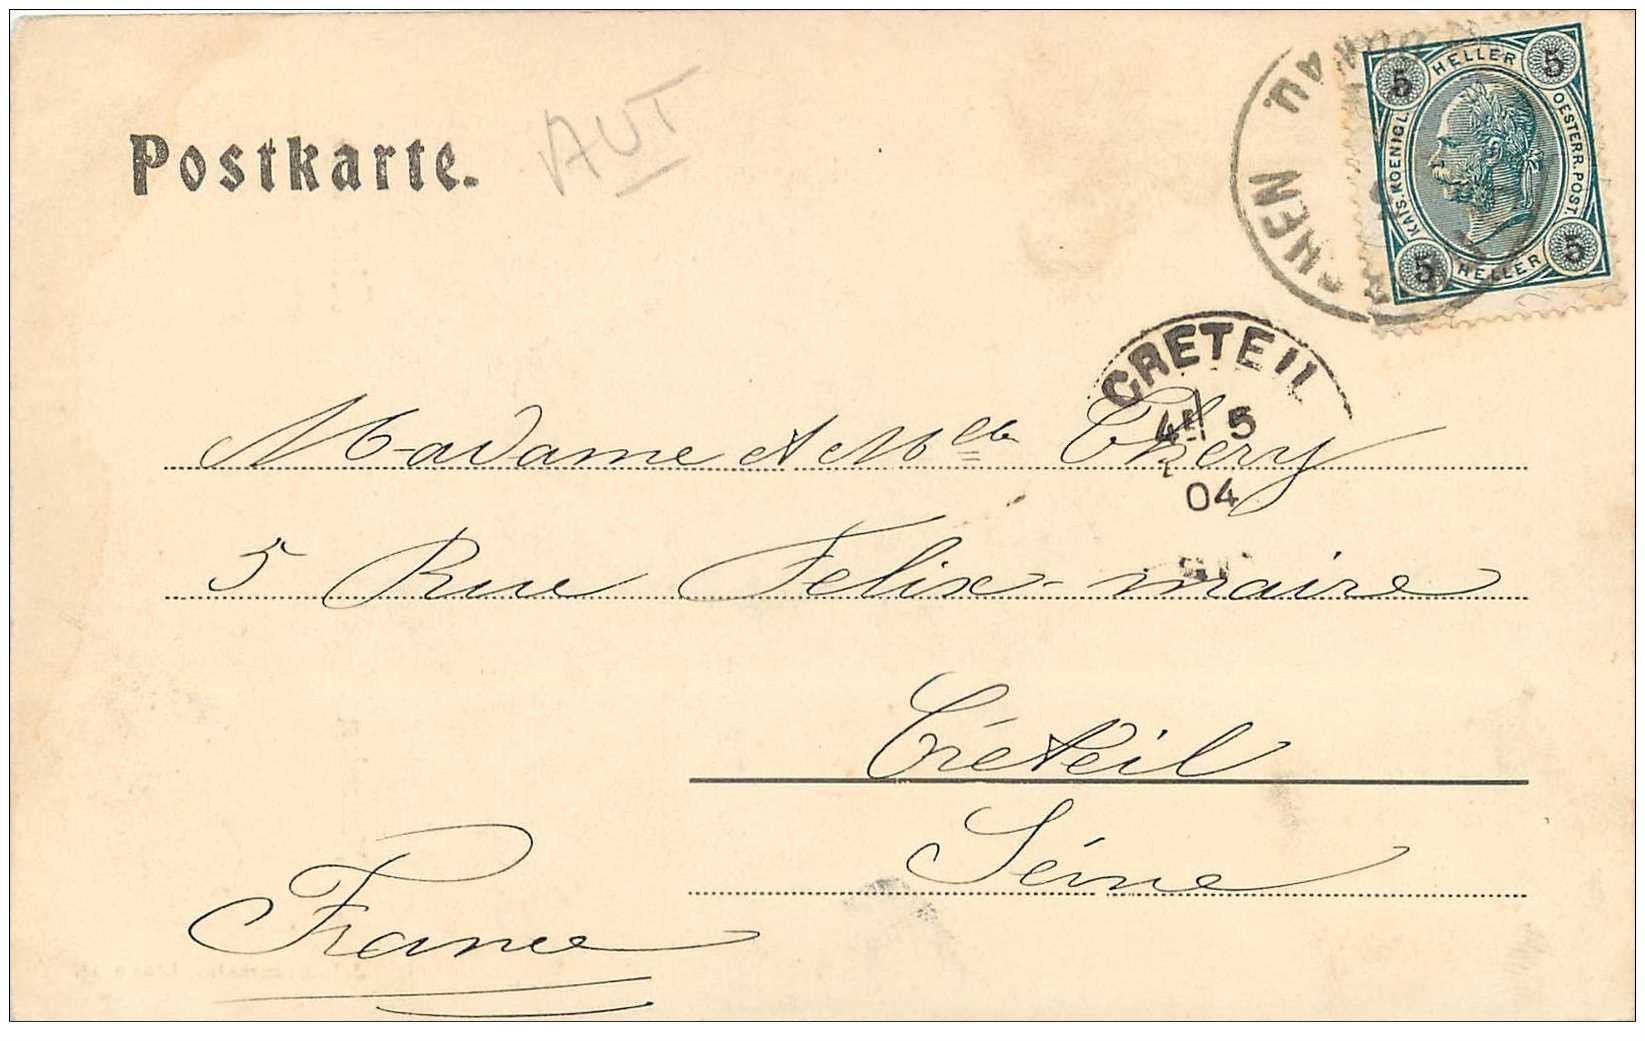 Postkarte.
AUT
5 HELLER 5
KAIS. KOENIGL. OESTERR. POST.
5 HELLER 5
CRETEIL
5
04
Madame et Mlle Théry
5 Rue Felix-maire
Créteil
Séine
France